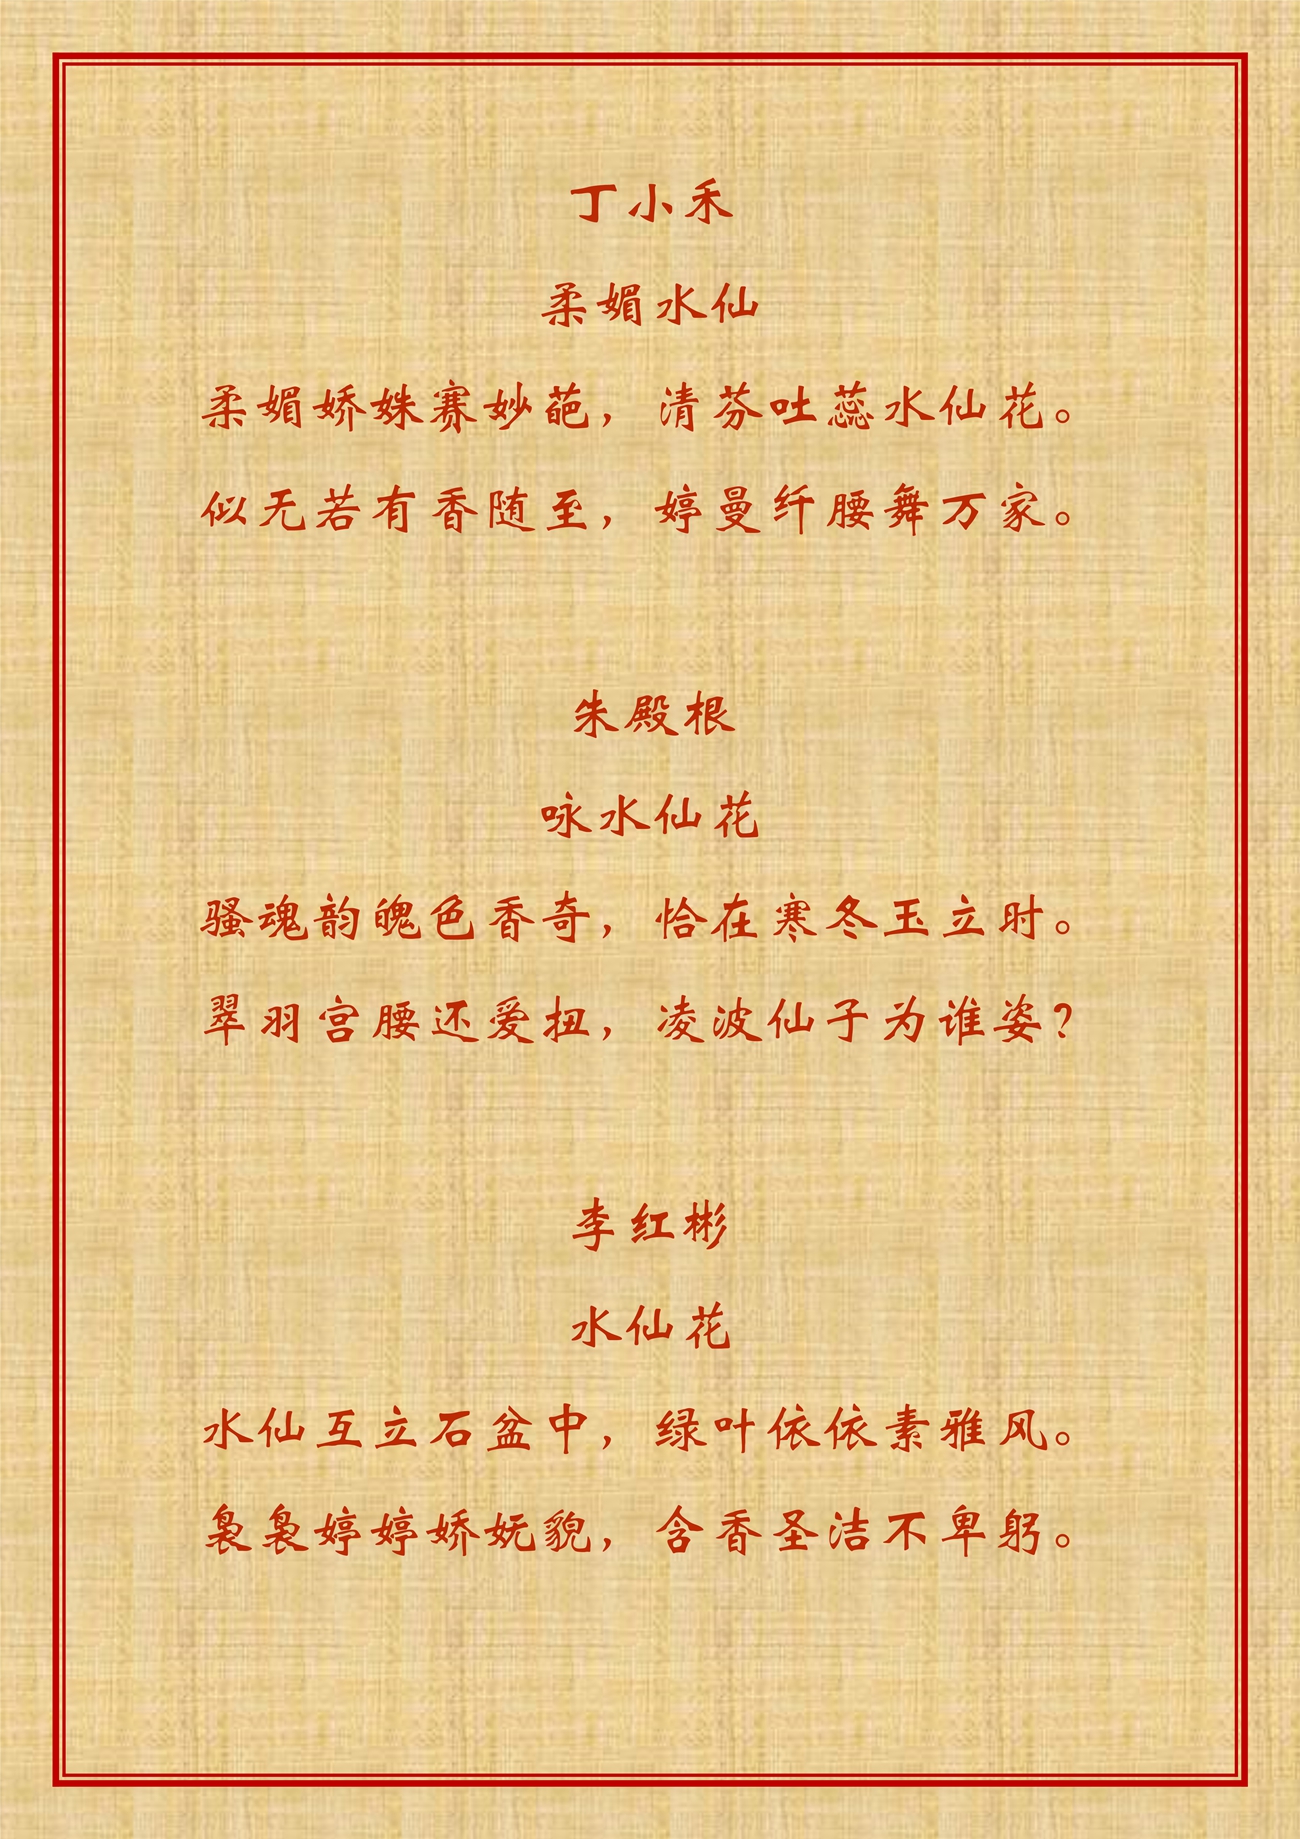 丁小禾
柔媚水仙
柔媚娇姝赛妙葩，清芬吐蕊水仙花。
似无若有香随至，婷曼纤腰舞万家。
朱殿根
咏水仙花
骚魂韵魄色香奇，恰在寒冬玉立时。
翠羽宫腰还爱扭，凌波仙子为谁姿？
李红彬
水仙花
水仙互立石盆中，绿叶依依素雅风。
袅袅婷婷娇妩貌，含香圣洁不卑躬。